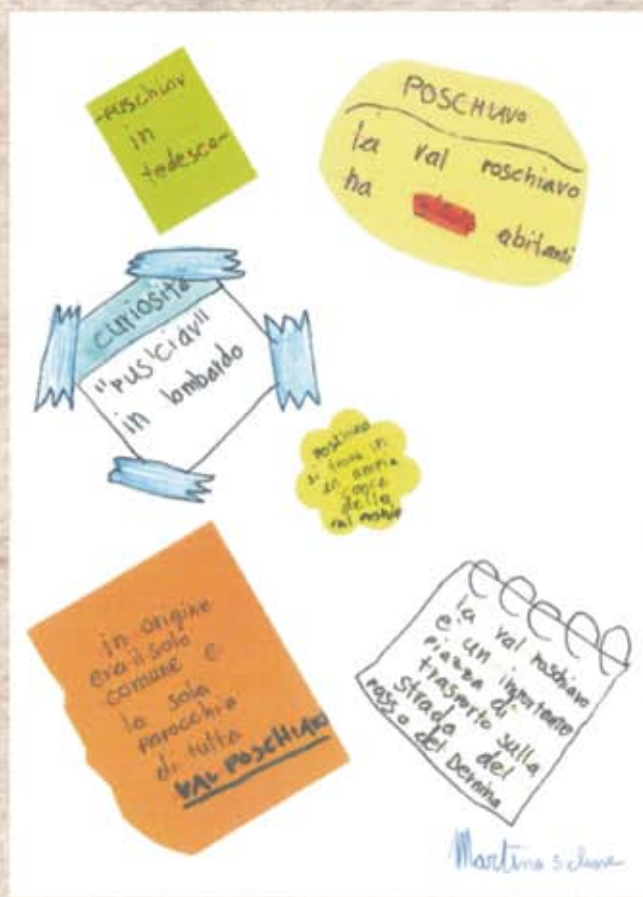 -PUSCHLAV
in
tedesco-
POSCHIAVO
la val poschiavo
ha abitanti
curiosità
"PUS'CIAV"
in lombardo
POSCHIAVO
si trova in
un ampia
conca
della
val omonima
in origine
era il solo
comune e
la sola
parocchia
di tutta
VAL POSCHIAVO
la val poschiavo
e' un importante
piazza di
trasporto sulla
strada del
passo del Bernina
Martino 5 classe